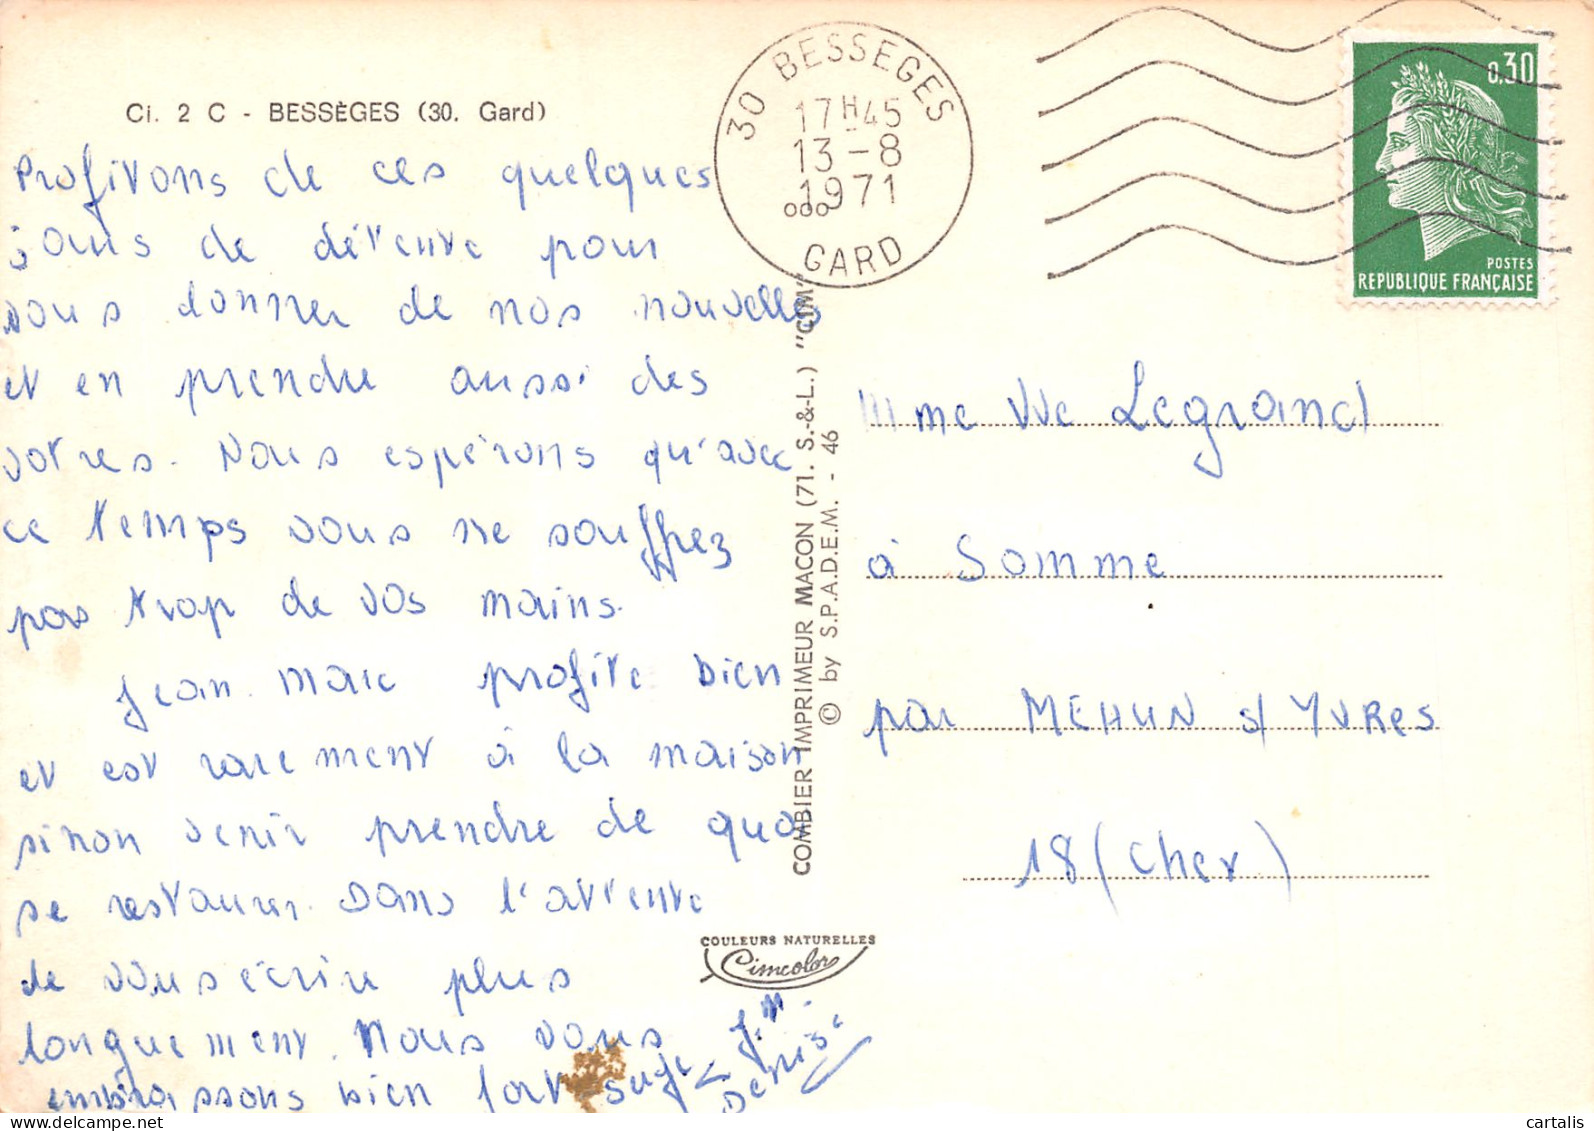 Ci. 2 C - BESSÈGES (30. Gard)
Profitons de ces quelques
jours de détente pour
vous donner de nos nouvelles
et en prendre aussi des
votres. Nous espérons qu'avec
ce temps vous ne souffrez
pas trop de vos mains.
Jean-Marc profite bien
et est rarement à la maison
sinon venir prendre de quoi
se restaurer. Dans l'attente
de vous écrire plus
longuement. Nous vous
embrassons bien fort
J.M
Denise
30 BESSEGES
17H45
13-8
1971
GARD
0,30
POSTES
REPUBLIQUE FRANÇAISE
COMBIER IMPRIMEUR MACON (71. S.-&-L.) "CIM"
© by S.P.A.D.E.M. - 46
Mme Vve Legrand
à Somme
par MEHUN s/ YVRes
18 (Cher)
COULEURS NATURELLES
Cimcolor
cartalis
www.delcampe.net